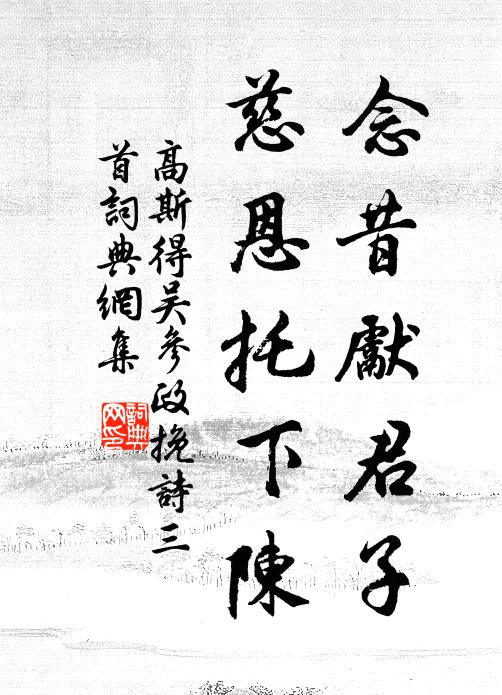 念昔獻君子
慈恩托下陳
高斯得吴參政挽詩三
首詞典網集
詞典
网印